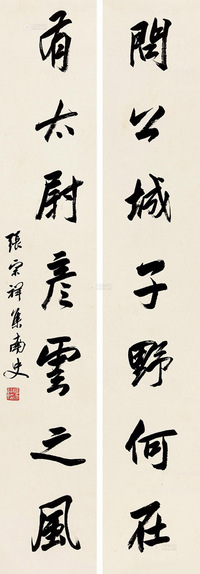 問公城子野何在
有太尉彥雲之風
張宗祥集南史